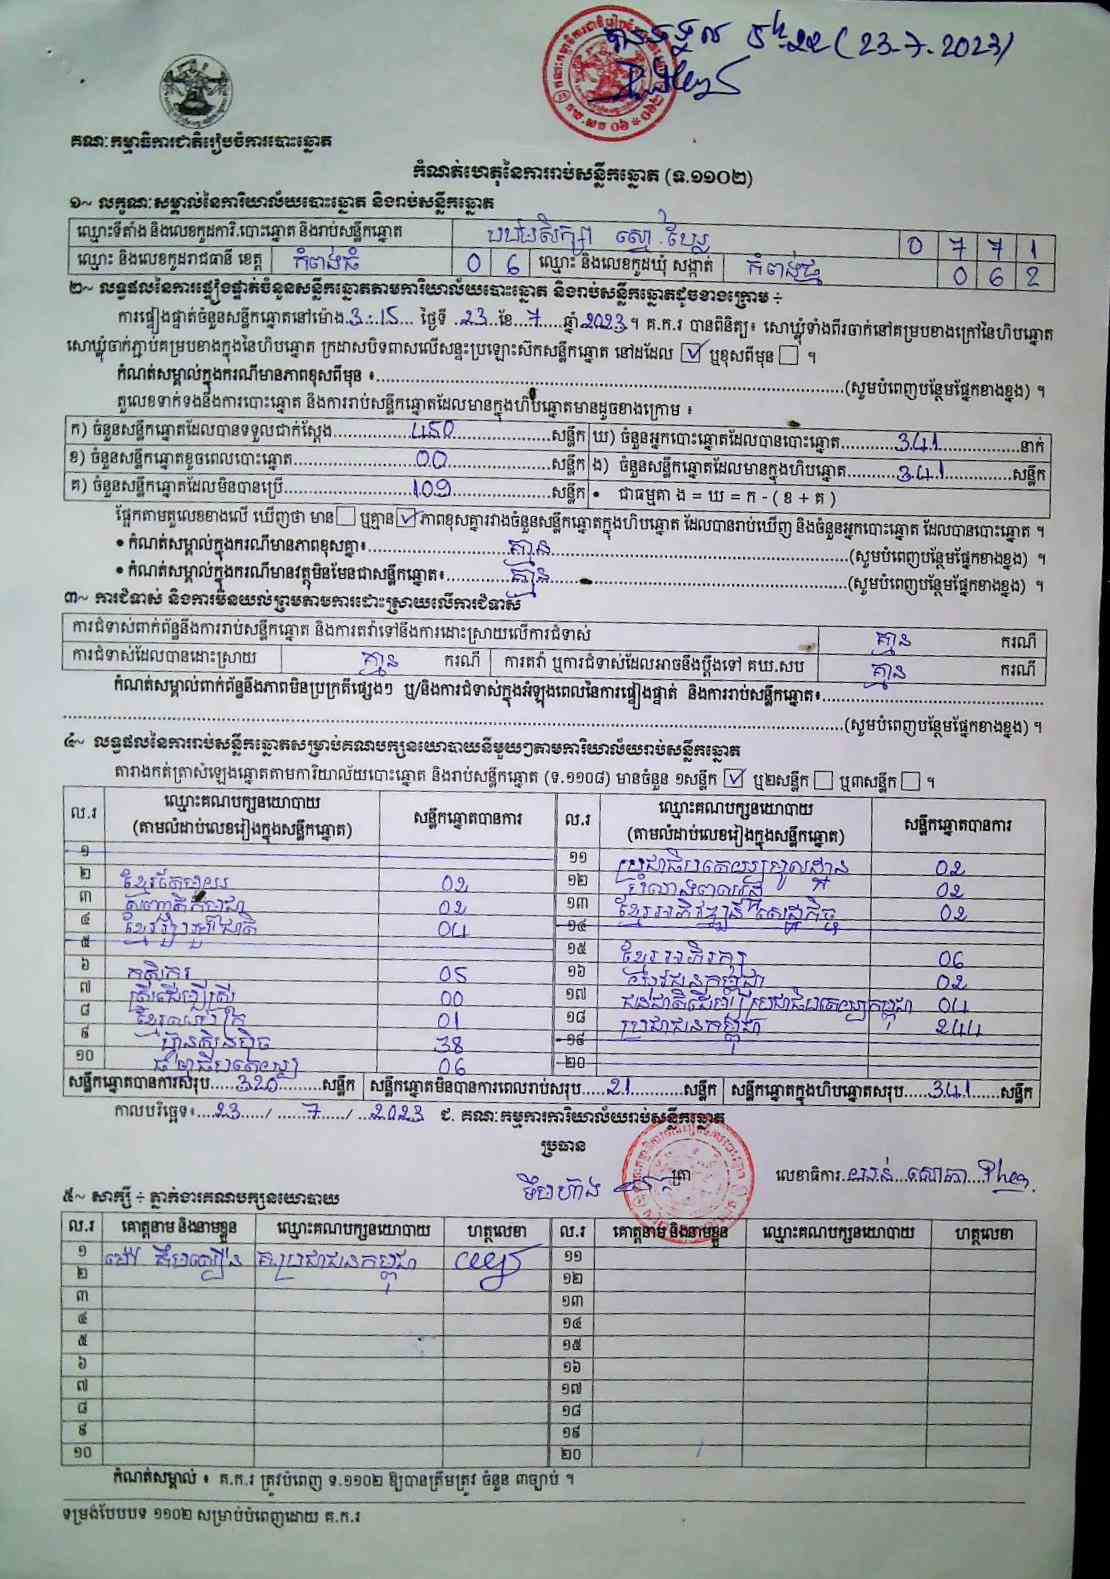 បានទទួល ម៉ោង 5h:22 (23.7.2023)
គណៈកម្មាធិការជាតិរៀបចំការបោះឆ្នោត
កំណត់ហេតុនៃការរាប់សន្លឹកឆ្នោត (ទ.១១០២)
១~ លក្ខណៈសម្គាល់នៃការិយាល័យបោះឆ្នោត និងរាប់សន្លឹកឆ្នោត
ឈ្មោះទីតាំង និងលេខកូដការិ.បោះឆ្នោត និងរាប់សន្លឹកឆ្នោត 0 7 7 1
ឈ្មោះ និងលេខកូដរាជធានី ខេត្ត កំពង់ធំ 0 6 ឈ្មោះ និងលេខកូដឃុំ សង្កាត់ 0 6 2
២~ លទ្ធផលនៃការផ្ទៀងផ្ទាត់ចំនួនសន្លឹកឆ្នោតតាមការិយាល័យបោះឆ្នោត និងរាប់សន្លឹកឆ្នោតដូចខាងក្រោម ÷
ការផ្ទៀងផ្ទាត់ចំនួនសន្លឹកឆ្នោតនៅម៉ោង 3:15 ថ្ងៃទី 23 ខែ 7 ឆ្នាំ 2023 ។ គ.ក.រ បានពិនិត្យ៖ សោឃ្លុំទាំងពីរចាក់នៅគម្របខាងក្រៅនៃហិបឆ្នោត
សោឃ្លុំចាក់ភ្ជាប់គម្របខាងក្នុងនៃហិបឆ្នោត ក្រដាសបិទពាសលើសន្ទះប្រឡោះស៊កសន្លឹកឆ្នោត នៅដដែល ☑ ឬខុសពីមុន ☐ ។
កំណត់សម្គាល់ក្នុងករណីមានភាពខុសពីមុន ៖ (សូមបំពេញបន្ថែមផ្នែកខាងខ្នង) ។
តួលេខទាក់ទងនឹងការបោះឆ្នោត និងការរាប់សន្លឹកឆ្នោតដែលមានក្នុងហិបឆ្នោតមានដូចខាងក្រោម ៖
ក) ចំនួនសន្លឹកឆ្នោតដែលបានទទួលជាក់ស្តែង 450 សន្លឹក ឃ) ចំនួនអ្នកបោះឆ្នោតដែលបានបោះឆ្នោត 341 នាក់
ខ) ចំនួនសន្លឹកឆ្នោតខូចពេលបោះឆ្នោត 00 សន្លឹក ង) ចំនួនសន្លឹកឆ្នោតដែលមានក្នុងហិបឆ្នោត 341 សន្លឹក
គ) ចំនួនសន្លឹកឆ្នោតដែលមិនបានប្រើ 109 សន្លឹក • ជាធម្មតា ង = ឃ = ក - ( ខ + គ )
ផ្អែកតាមតួលេខខាងលើ ឃើញថា មាន ☐ ឬគ្មាន ☑ ភាពខុសគ្នារវាងចំនួនសន្លឹកឆ្នោតក្នុងហិបឆ្នោត ដែលបានរាប់ឃើញ និងចំនួនអ្នកបោះឆ្នោត ដែលបានបោះឆ្នោត ។
• កំណត់សម្គាល់ក្នុងករណីមានភាពខុសគ្នា៖ គ្មាន (សូមបំពេញបន្ថែមផ្នែកខាងខ្នង) ។
• កំណត់សម្គាល់ក្នុងករណីមានវត្ថុមិនមែនជាសន្លឹកឆ្នោត៖ គ្មាន (សូមបំពេញបន្ថែមផ្នែកខាងខ្នង) ។
៣~ ការជំទាស់ និងការមិនយល់ព្រមតាមការដោះស្រាយលើការជំទាស់
ការជំទាស់ពាក់ព័ន្ធនឹងការរាប់សន្លឹកឆ្នោត និងការតវ៉ាទៅនឹងការដោះស្រាយលើការជំទាស់ គ្មាន ករណី
ការជំទាស់ដែលបានដោះស្រាយ គ្មាន ករណី ការតវ៉ា ឬការជំទាស់ដែលអាចនឹងប្តឹងទៅ គឃ.សប គ្មាន ករណី
កំណត់សម្គាល់ពាក់ព័ន្ធនឹងភាពមិនប្រក្រតីផ្សេងៗ ឬ/និងការជំទាស់ក្នុងអំឡុងពេលនៃការផ្ទៀងផ្ទាត់ និងការរាប់សន្លឹកឆ្នោត៖
(សូមបំពេញបន្ថែមផ្នែកខាងខ្នង) ។
៤~ លទ្ធផលនៃការរាប់សន្លឹកឆ្នោតសម្រាប់គណបក្សនយោបាយនីមួយៗតាមការិយាល័យរាប់សន្លឹកឆ្នោត
តារាងកត់ត្រាសំឡេងឆ្នោតតាមការិយាល័យបោះឆ្នោត និងរាប់សន្លឹកឆ្នោត (ទ.១១០៨) មានចំនួន ១សន្លឹក ☑ ឬ២សន្លឹក ☐ ឬ៣សន្លឹក ☐ ។
ល.រ ឈ្មោះគណបក្សនយោបាយ (តាមលំដាប់លេខរៀងក្នុងសន្លឹកឆ្នោត) សន្លឹកឆ្នោតបានការ ល.រ ឈ្មោះគណបក្សនយោបាយ (តាមលំដាប់លេខរៀងក្នុងសន្លឹកឆ្នោត) សន្លឹកឆ្នោតបានការ
១ ១១ ប្រជាធិបតេយ្យមូលដ្ឋាន 02
២ ខ្មែរតែមួយ 02 ១២ 02
៣ សញ្ជាតិកម្ពុជា 02 ១៣ ខ្មែរអភិវឌ្ឍន៍សេដ្ឋកិច្ច 02
៤ ខ្មែររួបរួមជាតិ 04 ១៤
៥ ១៥ ខ្មែរអភិរក្ស 06
៦ កសិករ 05 ១៦ យុវជនកម្ពុជា 02
៧ ស្រីដើម្បីស្រី 00 ១៧ ជនជាតិដើមប្រជាធិបតេយ្យកម្ពុជា 04
៨ ខ្មែរឈប់ក្រ 01 ១៨ ប្រជាជនកម្ពុជា 244
៩ ហ្វ៊ុនស៊ិនប៉ិច 38 ១៩
១០ ធម្មាធិបតេយ្យ 06 ២០
សន្លឹកឆ្នោតបានការសរុប 320 សន្លឹក សន្លឹកឆ្នោតមិនបានការពេលរាប់សរុប 21 សន្លឹក សន្លឹកឆ្នោតក្នុងហិបឆ្នោតសរុប 341 សន្លឹក
កាលបរិច្ឆេទ៖ 23 / 7 / 2023 ជ. គណៈកម្មការការិយាល័យរាប់សន្លឹកឆ្នោត
ប្រធាន
ត្រា លេខាធិការ
៥~ សាក្សី ÷ ភ្នាក់ងារគណបក្សនយោបាយ
ល.រ គោត្តនាម និងនាមខ្លួន ឈ្មោះគណបក្សនយោបាយ ហត្ថលេខា ល.រ គោត្តនាម និងនាមខ្លួន ឈ្មោះគណបក្សនយោបាយ ហត្ថលេខា
១ គ.ប្រជាជនកម្ពុជា ១១
២ ១២
៣ ១៣
៤ ១៤
៥ ១៥
៦ ១៦
៧ ១៧
៨ ១៨
៩ ១៩
១០ ២០
កំណត់សម្គាល់ ៖ គ.ក.រ ត្រូវបំពេញ ទ.១១០២ ឱ្យបានត្រឹមត្រូវ ចំនួន ៣ច្បាប់ ។
ទម្រង់បែបបទ ១១០២ សម្រាប់បំពេញដោយ គ.ក.រ